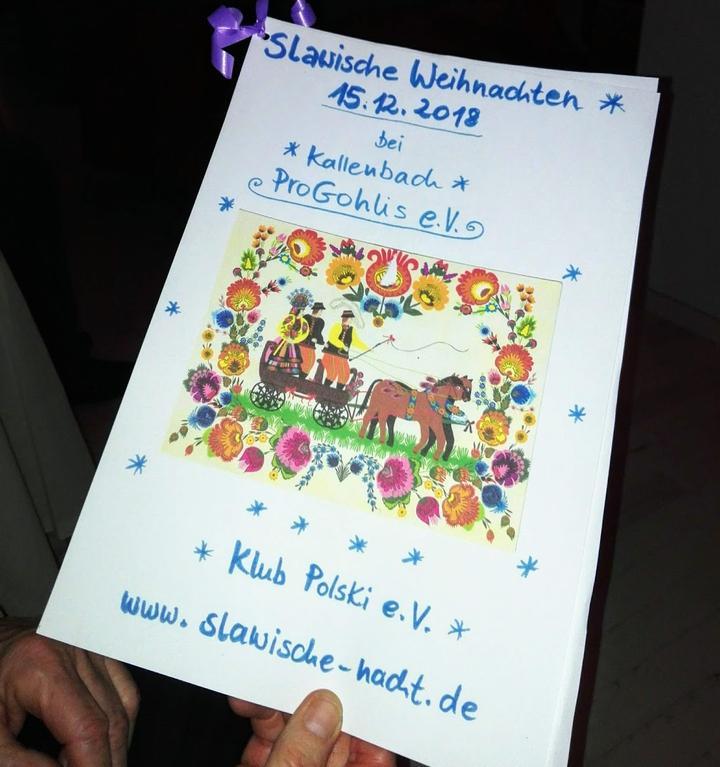 Slawische Weihnachten *
15.12.2018
bei
* Kallenbach *
ProGohlis e.V.
* Klub Polski e.V. *
www.slawische-nacht.de